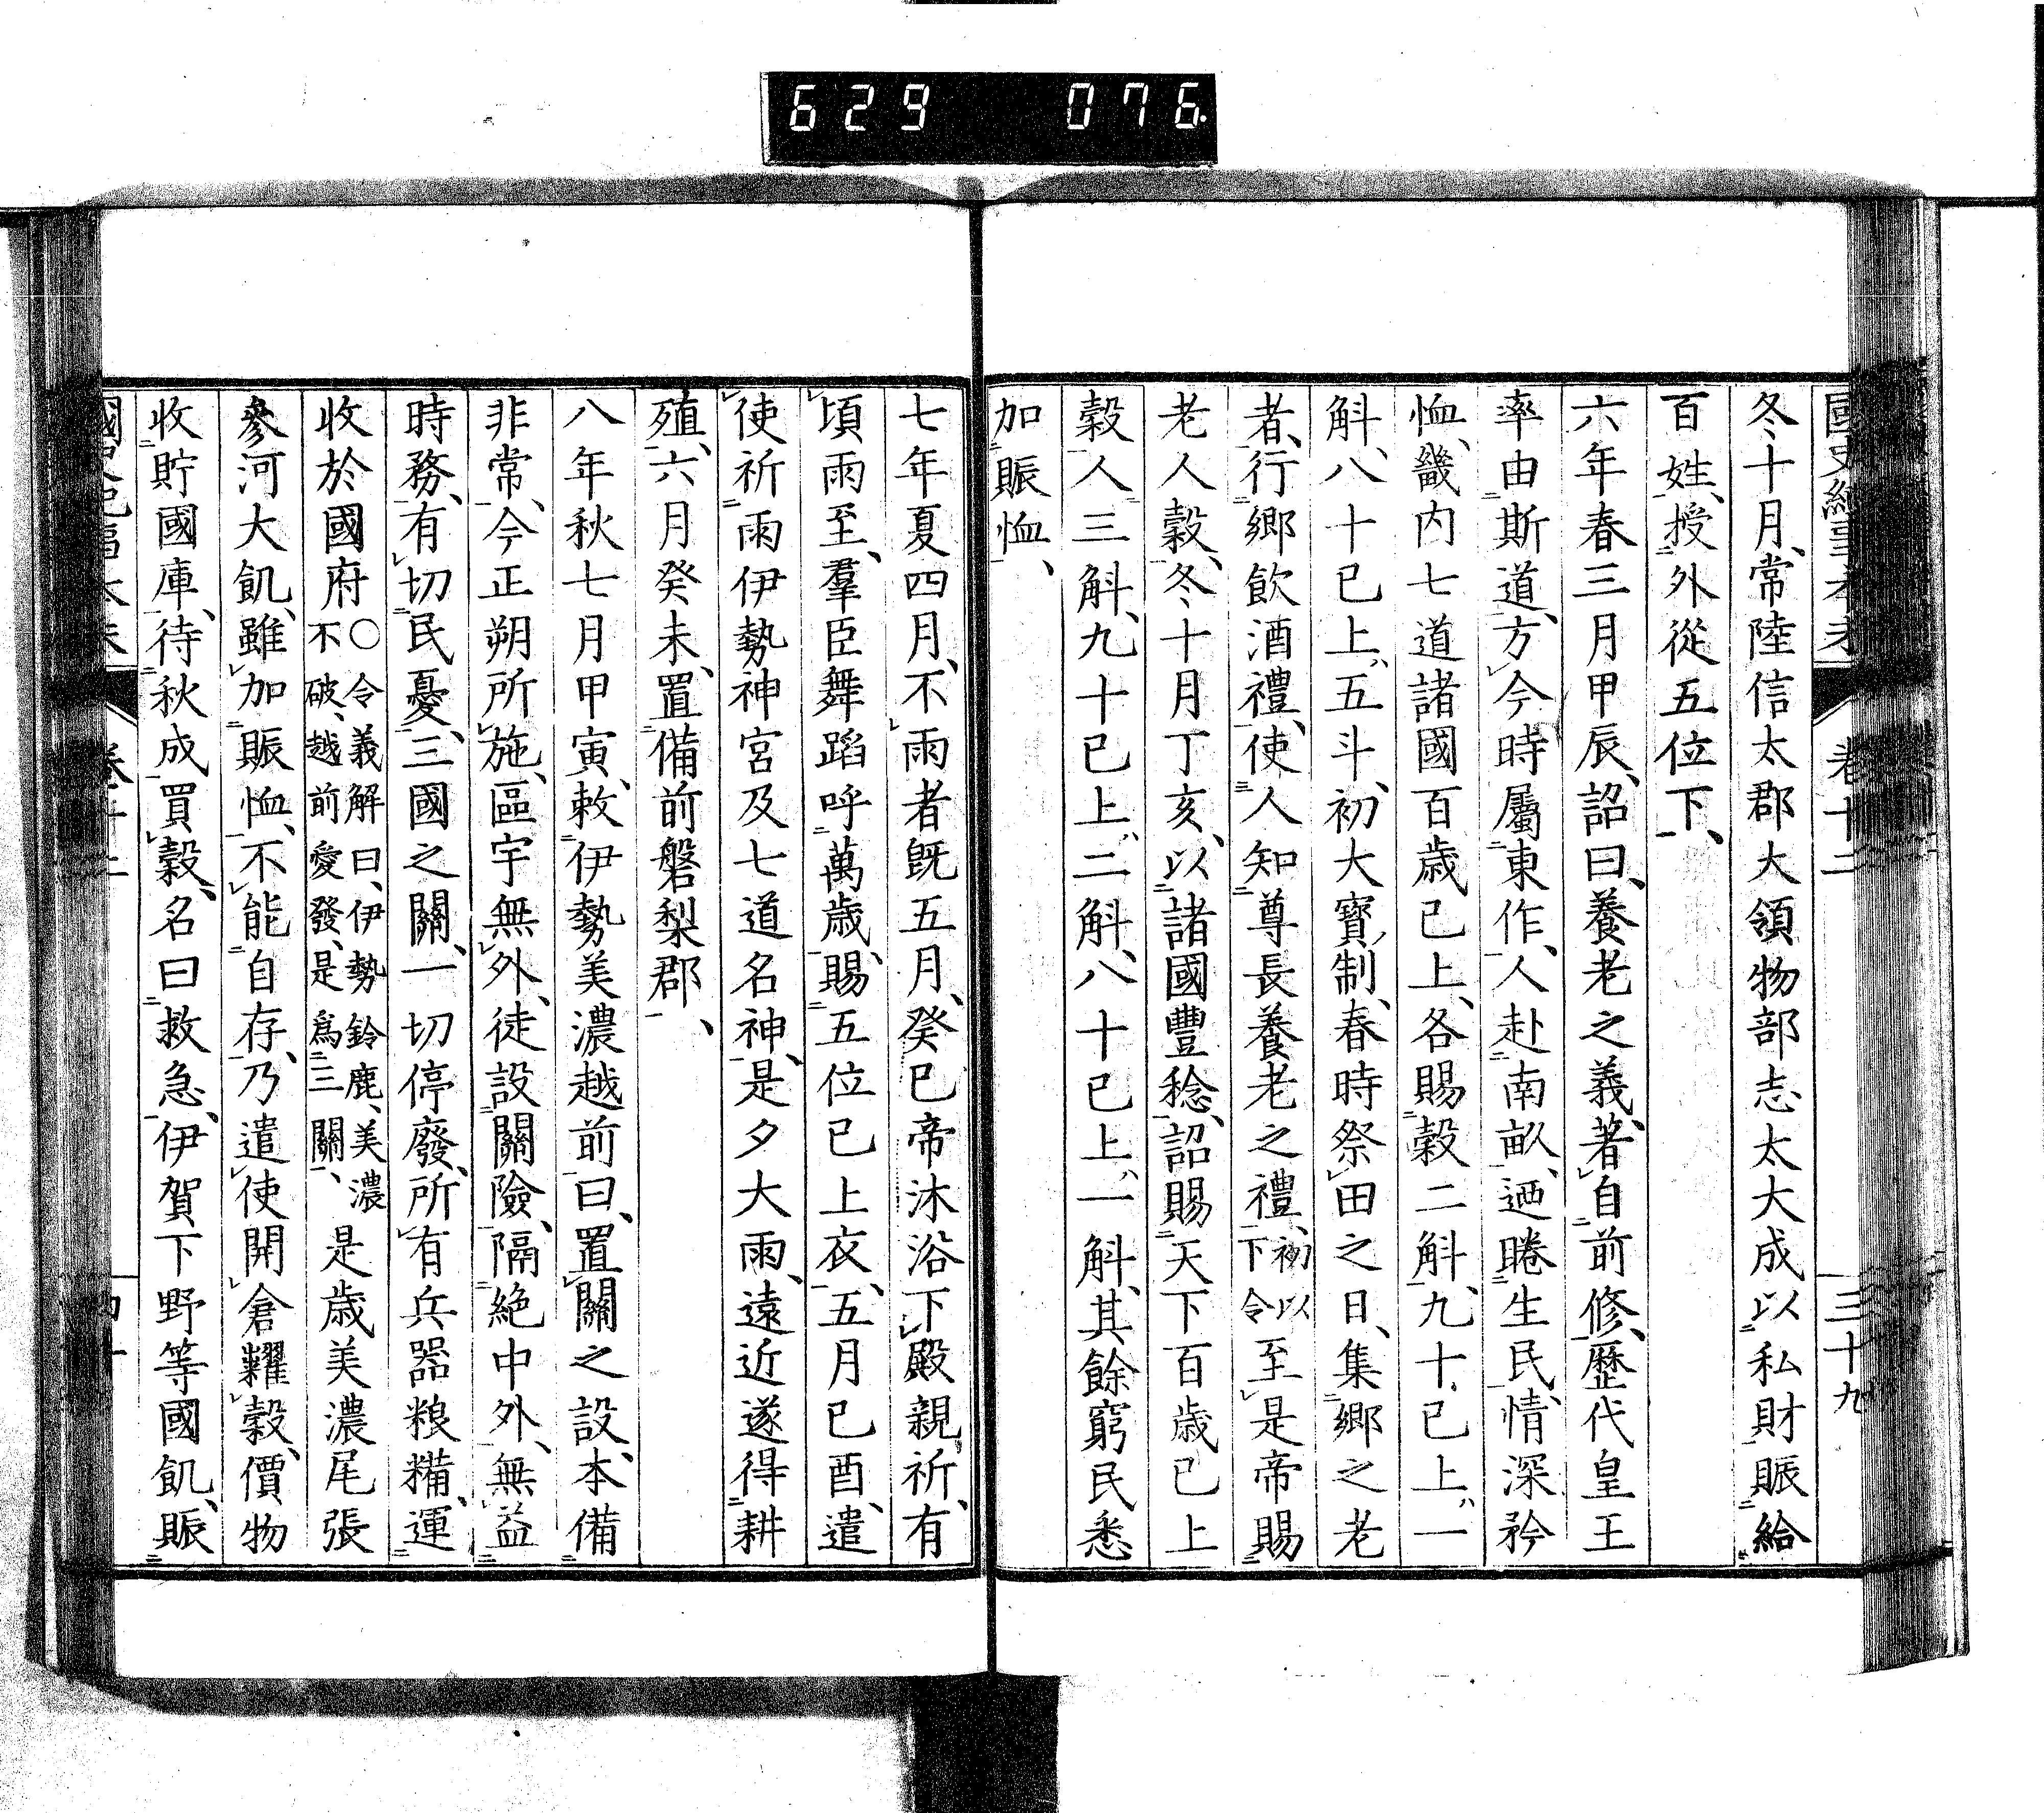 629 076
國史紀事本末 卷十二 三十九
冬十月、常陸信太郡大領物部志太大成以私財賑給
百姓、授外從五位下、
六年春三月甲辰、詔曰、養老之義、著自前修、歷代皇王
率由斯道、方今時屬東作、人赴南畝、迺睠生民、情深矜
恤、畿內七道諸國百歲已上、各賜穀二斛、九十已上、一
斛、八十已上、五斗、初大寶制、春時祭田之日、集鄉之老
者、行鄉飲酒禮、使人知尊長養老之禮、初以下令至是帝賜
老人穀、冬十月丁亥、以諸國豐稔、詔賜天下百歲已上
穀人三斛、九十已上、二斛、八十已上、一斛、其餘窮民悉
加賑恤、
七年夏四月、不雨者既五月、癸巳帝沐浴下殿親祈、有
頃雨至、羣臣舞蹈呼萬歲、賜五位已上衣、五月己酉、遣
使祈雨伊勢神宮及七道名神、是夕大雨、遠近遂得耕
殖、六月癸未、置備前磐梨郡、
八年秋七月甲寅、敕伊勢美濃越前曰、置關之設、本備
非常、今正朔所施、區宇無外、徒設關險、隔絕中外、無益
時務、有切民憂、三國之關、一切停廢、所有兵器粮糒、運
收於國府○令義解曰、伊勢鈴鹿、美濃不破、越前愛發、是爲三關、是歲美濃尾張
參河大飢、雖加賑恤、不能自存、乃遣使開倉糶穀、價物
收貯國庫、待秋成買穀、名曰救急、伊賀下野等國飢、賑